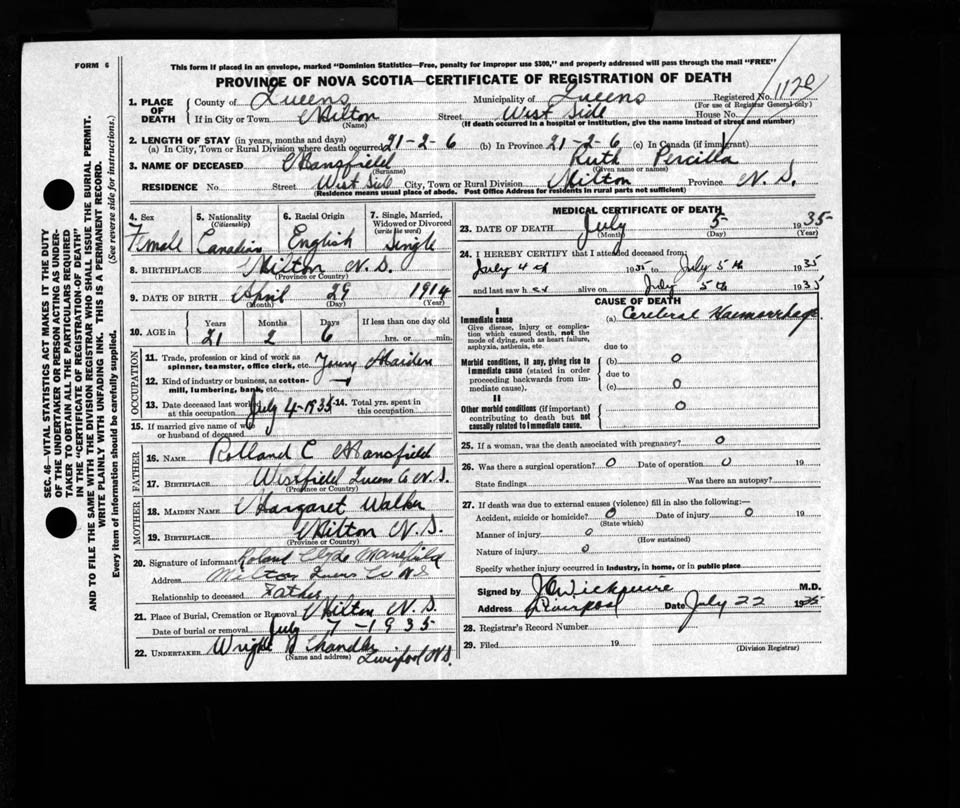 FORM 6
This form if placed in an envelope, marked "Dominion Statistics—Free, penalty for improper use $300," and properly addressed will pass through the mail "FREE"
PROVINCE OF NOVA SCOTIA—CERTIFICATE OF REGISTRATION OF DEATH
1. PLACE OF DEATH County of Queens Municipality of Queens Registered No. 1120
(For use of Registrar General only)
If in City or Town Milton Street West Side House No.
(Name) (If death occurred in a hospital or institution, give the name instead of street and number)
2. LENGTH OF STAY (in years, months and days)
(a) In City, Town or Rural Division where death occurred 21-2-6 (b) In Province 21-2-6 (c) In Canada (if immigrant)
3. NAME OF DECEASED Mansfield Ruth Percilla
(Surname) (Given name or names)
RESIDENCE No. Street West Side City, Town or Rural Division Milton Province N.S.
(Residence means usual place of abode. Post Office Address for residents in rural parts not sufficient)
4. Sex Female
5. Nationality (Citizenship) Canadian
6. Racial Origin English
7. Single, Married, Widowed or Divorced (write the word) Single
8. BIRTHPLACE Milton N.S.
(Province or Country)
9. DATE OF BIRTH April 29 1914
(Month) (Day) (Year)
10. AGE in Years Months Days If less than one day old
21 2 6 hrs. or min.
OCCUPATION
11. Trade, profession or kind of work as spinner, teamster, office clerk, etc. Young Maiden
12. Kind of industry or business, as cotton-mill, lumbering, bank, etc. —
13. Date deceased last worked at this occupation July 4-1935 14. Total yrs. spent in this occupation
15. If married give name of wife or husband of deceased
FATHER
16. NAME Rolland C Mansfield
17. BIRTHPLACE Westfield Queens Co N.S.
(Province or Country)
MOTHER
18. MAIDEN NAME Margaret Walker
19. BIRTHPLACE Milton N.S.
(Province or Country)
20. Signature of informant Roland Clyde Mansfield
Address Milton Queens Co NS
Relationship to deceased Father
21. Place of Burial, Cremation or Removal Milton N.S.
Date of burial or removal July 7-1935
22. UNDERTAKER Wright Chandler Liverpool N.S.
(Name and address)
MEDICAL CERTIFICATE OF DEATH
23. DATE OF DEATH July 5- 1935
(Month) (Day) (Year)
24. I HEREBY CERTIFY that I attended deceased from
July 4th 1935 to July 5th 1935
and last saw her alive on July 5th 1935
CAUSE OF DEATH
I
Immediate cause (a) Cerebral Haemorrhage
Give disease, injury or complication which caused death, not the mode of dying, such as heart failure, asphyxia, asthenia, etc.
due to
Morbid conditions, if any, giving rise to immediate cause (stated in order proceeding backwards from immediate cause). (b) 0
due to
(c) 0
II
Other morbid conditions (if important) contributing to death but not causally related to immediate cause. 0
25. If a woman, was the death associated with pregnancy? 0
26. Was there a surgical operation? 0 Date of operation 0 19
State findings Was there an autopsy?
27. If death was due to external causes (violence) fill in also the following:—
Accident, suicide or homicide? 0 Date of injury 0 19
(State which)
Manner of injury 0
(How sustained)
Nature of injury 0
Specify whether injury occurred in industry, in home, or in public place
Signed by J O Wickwire M.D.
Address Liverpool Date July 22 1935
28. Registrar's Record Number
29. Filed 19
(Division Registrar)
SEC. 46—VITAL STATISTICS ACT MAKES IT THE DUTY
OF THE UNDERTAKER OR PERSON ACTING AS UNDER-
TAKER TO OBTAIN ALL THE PARTICULARS REQUIRED
IN THE "CERTIFICATE OF REGISTRATION OF DEATH"
AND TO FILE THE SAME WITH THE DIVISION REGISTRAR WHO SHALL ISSUE THE BURIAL PERMIT.
WRITE PLAINLY WITH UNFADING INK. THIS IS A PERMANENT RECORD.
Every item of information should be carefully supplied. (See reverse side for instructions.)